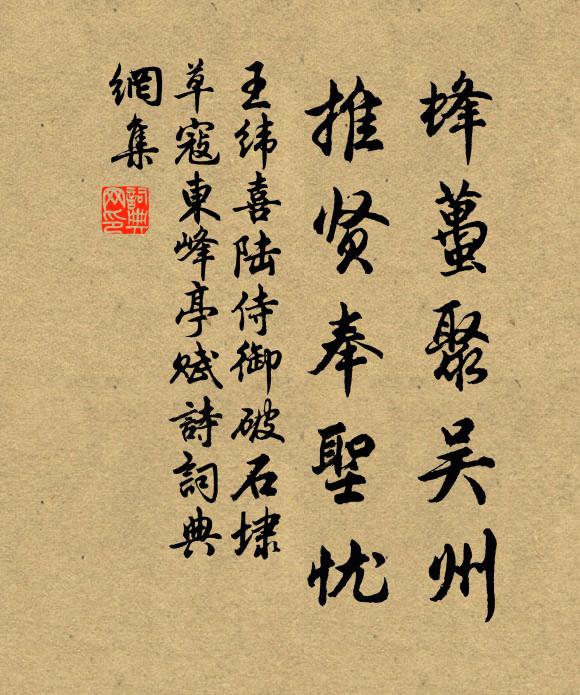 蜂虿聚吴州
推贤奉聖忧
王纬喜陆侍御破石埭
草寇東峰亭赋詩詞典
網集
詞典網印